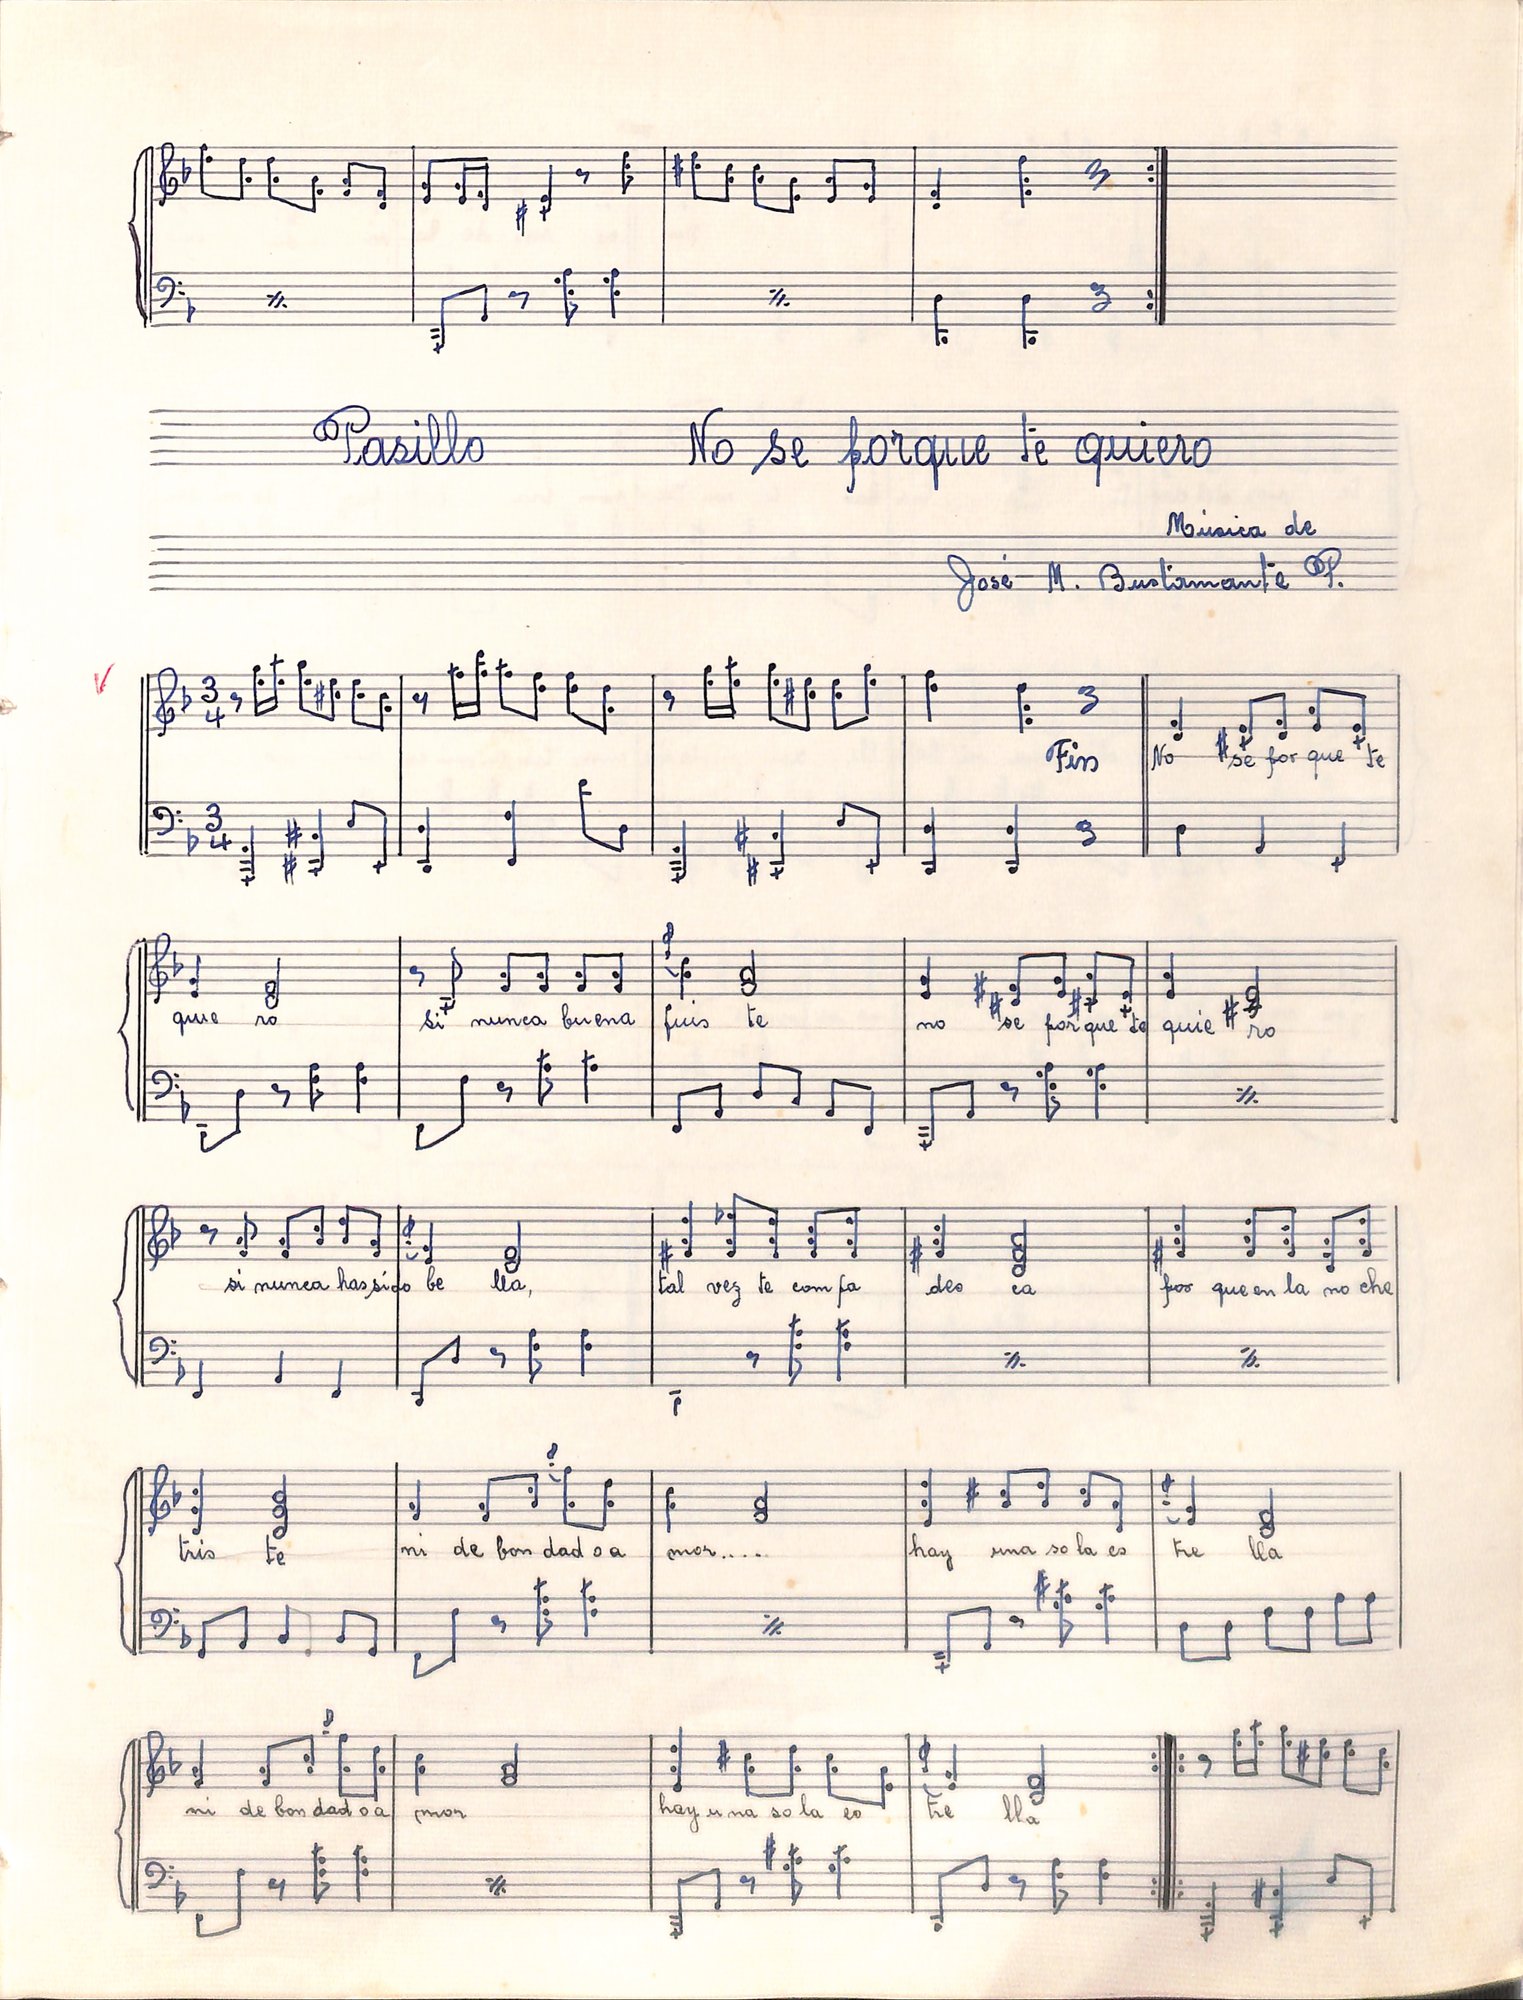 Pasillo No se porque te quiero
Música de
José M. Bustamante P.
3 4
Fin No se por que te
3 4
quie ro si nunca buena fuis te no se por que te quie ro
si nunca has sido be lla, tal vez te compa des ca por que en la no che
tris te ni de bon dad o a mor.... hay una so la es tre lla
ni de bon dad o a mor hay u na so la es tre lla